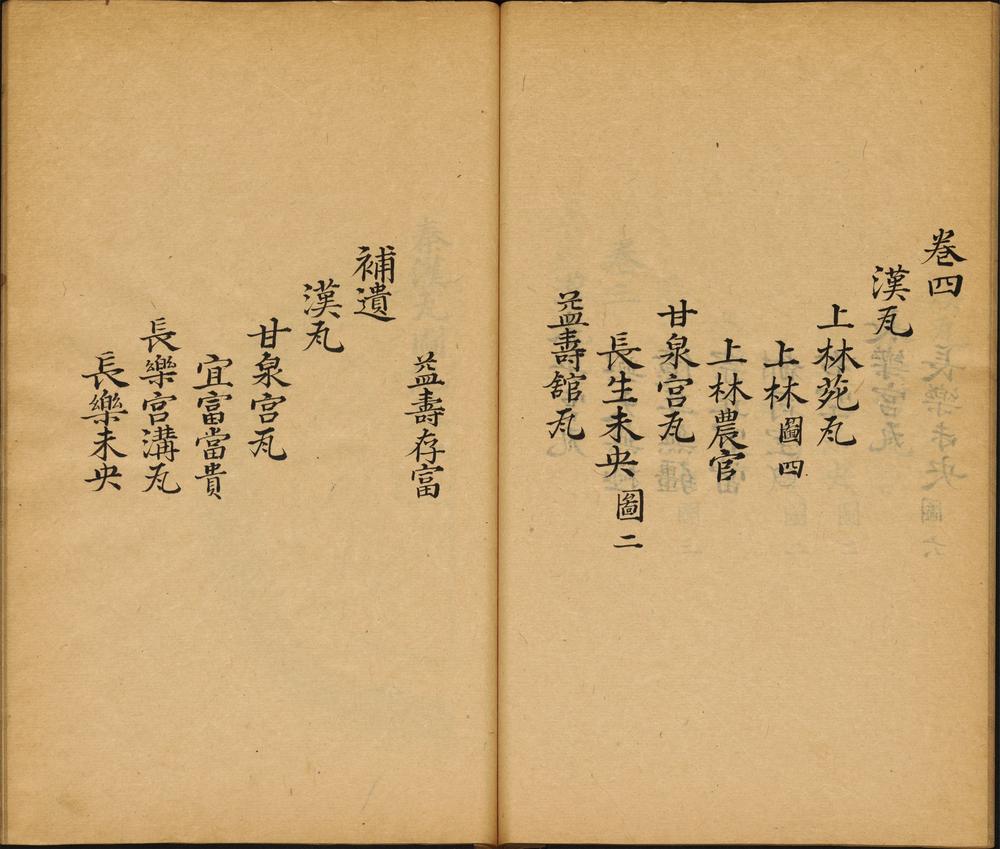 卷四
漢瓦
上林苑瓦
上林 圖四
上林農官
甘泉宮瓦
長生未央 圖二
益壽舘瓦
益壽存富
補遺
漢瓦
甘泉宮瓦
宜富當貴
長樂宮溝瓦
長樂未央